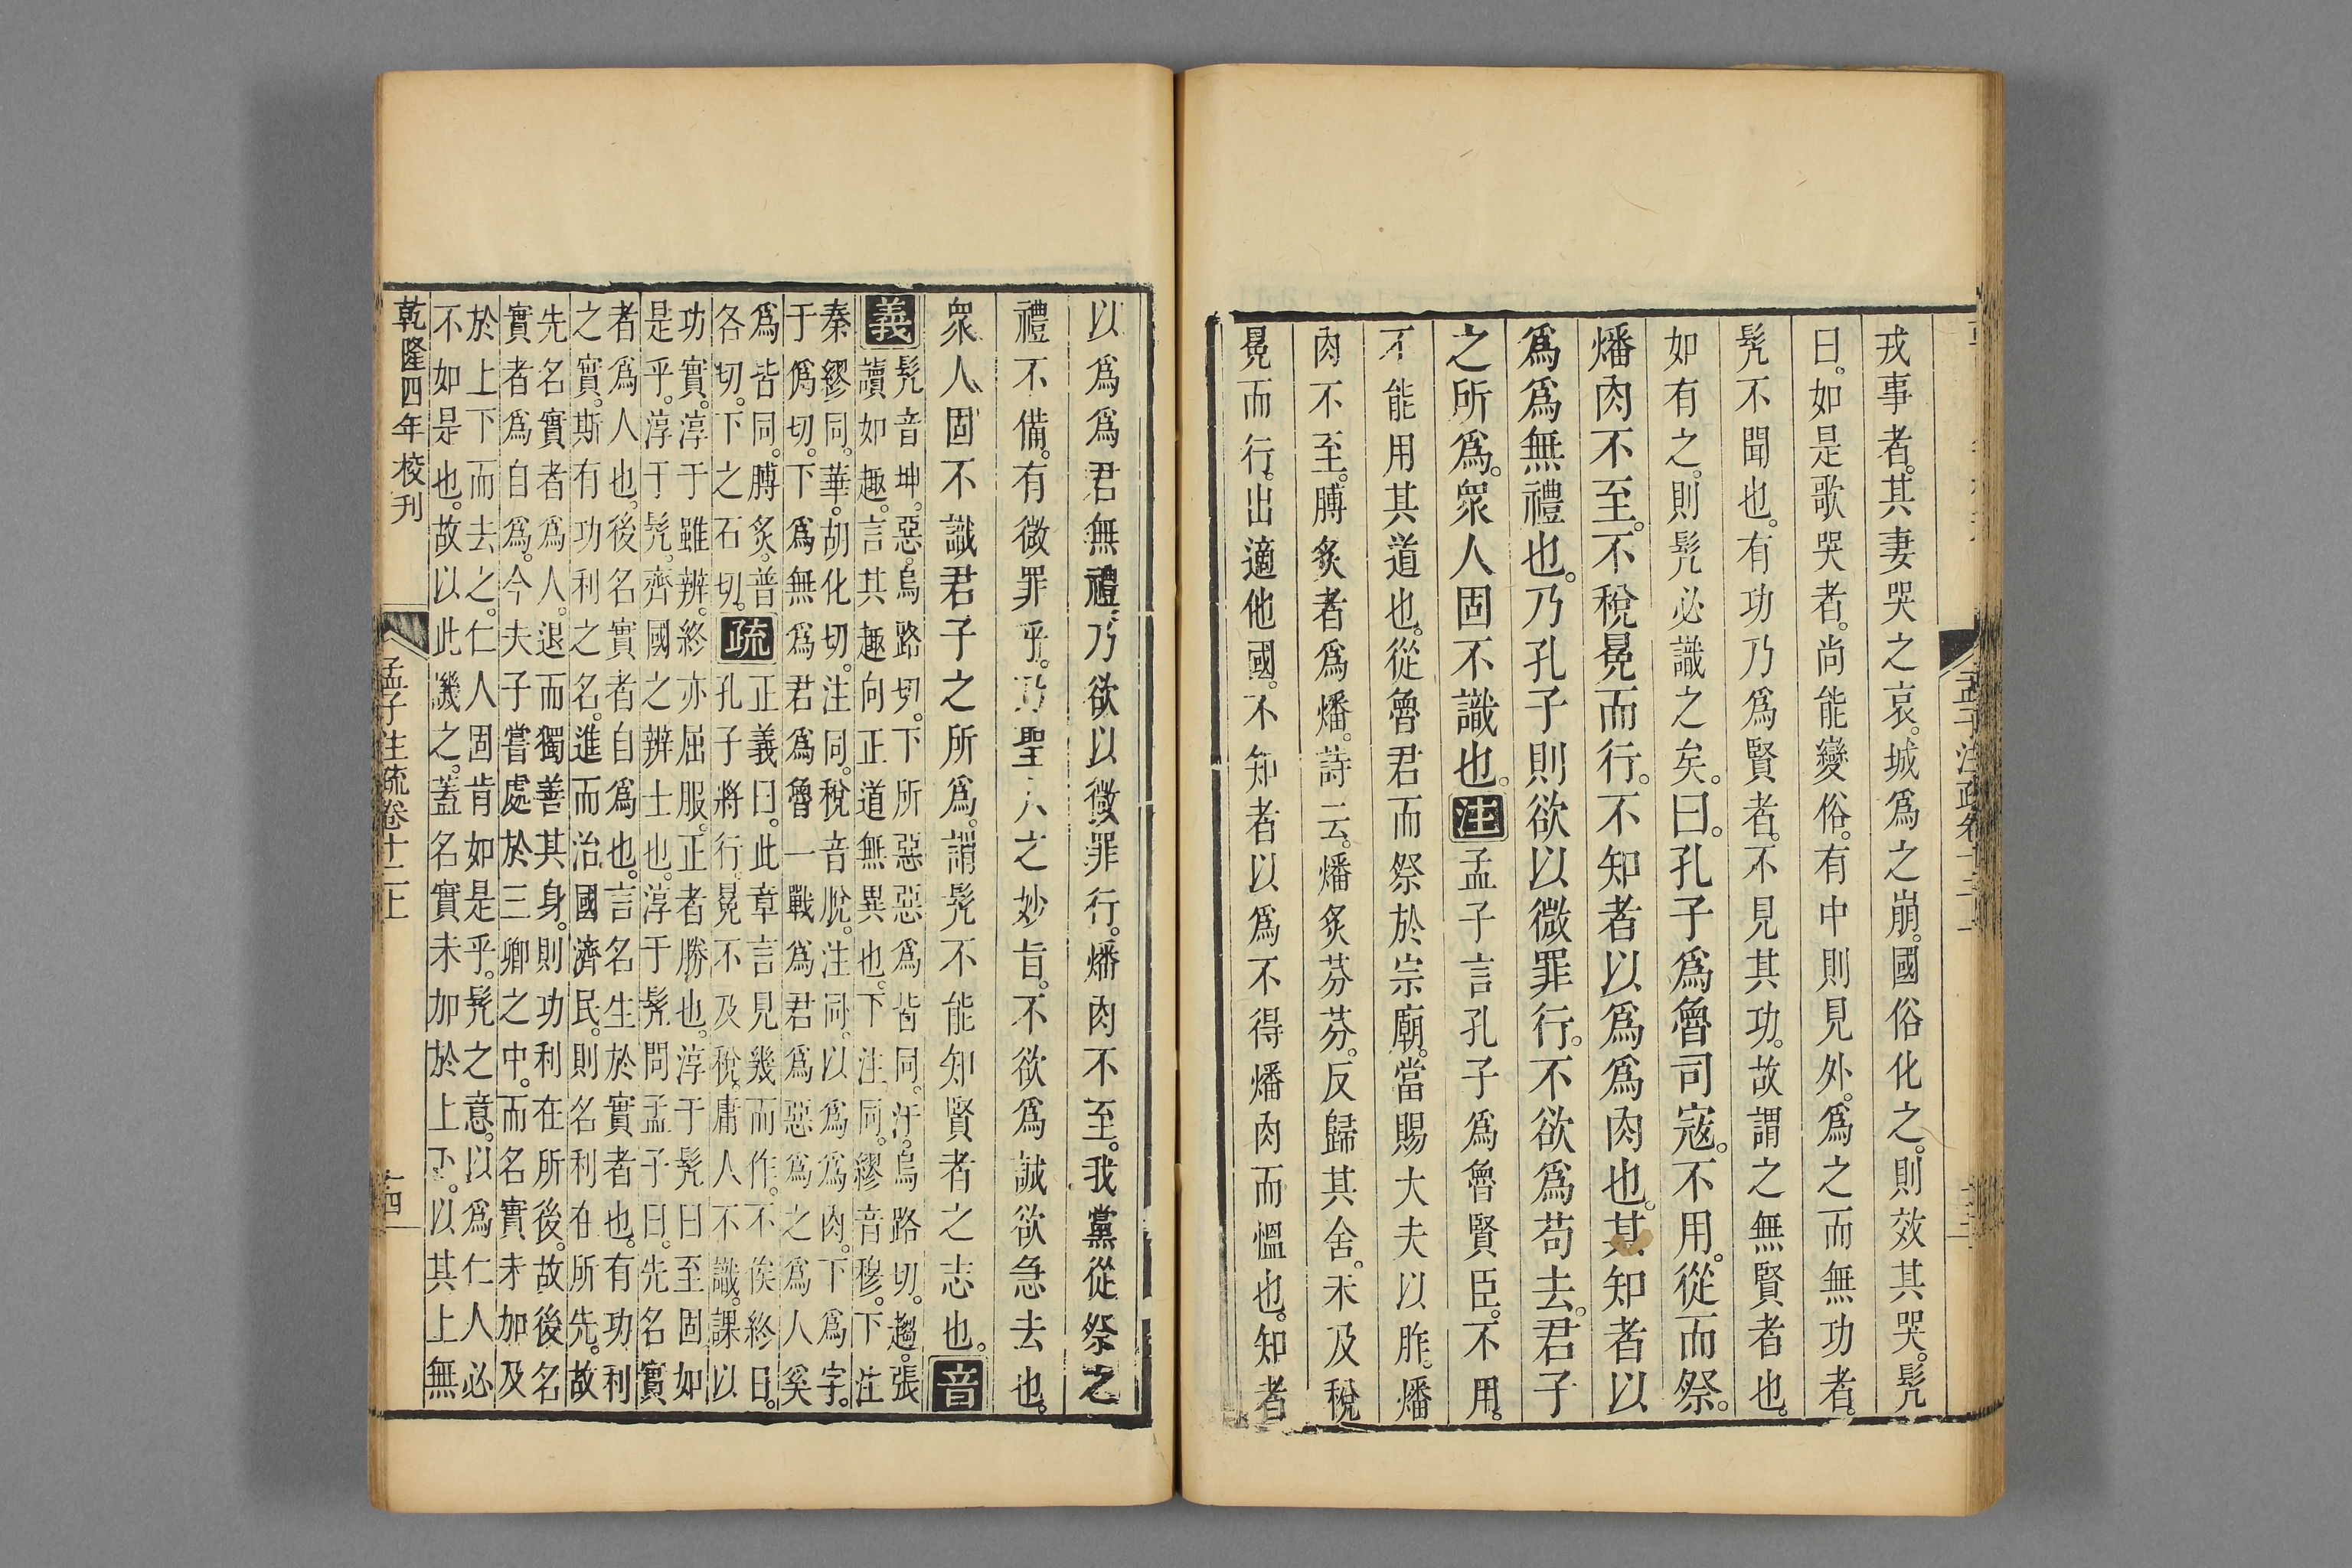 戎事者。其妻哭之哀。城爲之崩。國俗化之。則效其哭。髡
曰。如是歌哭者。尚能變俗。有中則見外。爲之而無功者。
髡不聞也。有功乃爲賢者。不見其功。故謂之無賢者也。
如有之。則髡必識之矣。曰。孔子爲魯司寇。不用。從而祭。
燔肉不至。不稅冕而行。不知者以爲爲肉也。其知者以
爲爲無禮也。乃孔子則欲以微罪行。不欲爲苟去。君子
之所爲。衆人固不識也。注孟子言孔子爲魯賢臣。不用。
不能用其道也。從魯君而祭於宗廟。當賜大夫以胙。燔
肉不至。膊炙者爲燔。詩云。燔炙芬芬。反歸其舍。未及稅
冕而行。出適他國。不知者以爲不得燔肉而慍也。知者
以爲爲君無禮。乃欲以微罪行。燔肉不至。我黨從祭之
禮不備。有微罪乎。乃聖人之妙旨。不欲爲誠欲急去也。
衆人固不識君子之所爲。謂髡不能知賢者之志也。音
義
髡音坤。惡。烏路切。下所惡惡爲皆同。汙。烏路切。趨。張
讀如趣。言其趣向正道無異也。下注同。繆音穆。下注
秦繆同。華。胡化切。注同。稅音脫。注同。以爲爲肉。下爲字。
于僞切。下爲無爲君爲魯一戰爲君爲惡爲之爲人奚
爲皆同。膊炙。普
各切。下之石切。
疏
正義曰。此章言見幾而作。不俟終日。
孔子將行。冕不及稅。庸人不識。課以
功實。淳于雖辨。終亦屈服。正者勝也。淳于髡曰至固如
是乎。淳于髡。齊國之辨士也。淳于髡問孟子曰。先名實
者爲人也。後名實者自爲也。言名生於實者也。有功利
之實。斯有功利之名。進而治國濟民。則名利在所先。故
先名實者爲人。退而獨善其身。則功利在所後。故後名
實者爲自爲。今夫子嘗處於三卿之中。而名實未加及
於上下而去之。仁人固肯如是乎。髡之意。以爲仁人必
不如是也。故以此譏之。蓋名實未加於上下。以其上無
乾隆四年校刊
孟子注疏卷十二上
十四